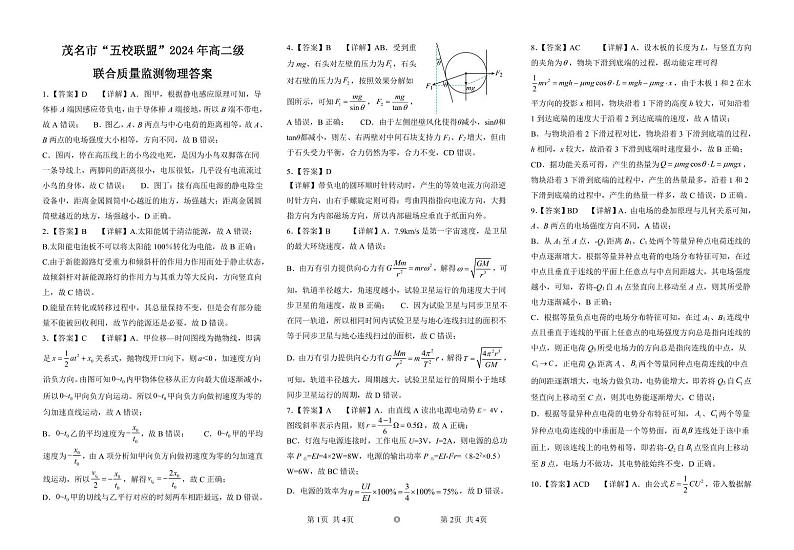 茂名市“五校联盟”2024 年高二级
联合质量监测物理答案
1.【答案】D 【详解】A．图甲，根据静电感应原理可知，导
体棒 A 端因感应带负电，由于导体棒 A 端接地，所以 B 端不带电，
故 A 错误； B．图乙，A、B 两点与中心电荷的距离相等，故 A、
B 两点的电场强度大小相等，方向不同，故 B 错误；
C．图丙，停在高压线上的小鸟没电死，是因为小鸟双脚落在同
一条导线上，两脚间的距离很小，电压很低，几乎没有电流流过
小鸟的身体，故 C 错误； D．图丁：接有高压电源的静电除尘
设备中，距离金属圆筒中心越近的地方，场强越大；距离金属圆
筒壁越近的地方，场强越小，D 正确。
2.【答案】B 【详解】A.太阳能属于清洁能源，故 A 错误；
B.太阳能电池板不可以将太阳能 100%转化为电能，故 B 正确；
C.由于新能源路灯受重力和倾斜杆的作用力作用而处于静止状态，
故倾斜杆对新能源路灯的作用力与其重力等大反向，方向竖直向
上，故 C 错误。
D.能量在转化或转移过程中，其总量保持不变，但是会有部分能
量不能被回收利用，故节约能源还是必要，故 D 错误。
3.【答案】C 【详解】A．甲位移—时间图线为抛物线，即满
足 x = 1/2 at² + x₀ 关系式，抛物线开口向下，则 a<0，加速度方向
沿负方向。由图可知 0~t₀ 内甲物体位移从正方向最大值逐渐减小，
所以 0~t₀ 甲向负方向运动。所以 0~t₀ 甲向负方向做初速度为零的
匀加速直线运动，故 A 错误；
B．0~t₀ 乙的平均速度为 −x₀/t₀，故 B 错误； C．0~t₀ 甲的平均
速度为 −x₀/t₀，由 A 项分析知甲向负方向做初速度为零的匀加速直
线运动。所以 v₀/2 = −x₀/t₀，解得 v₀ = −2x₀/t₀，故 C 正确；
D．0~t₀ 甲的切线与乙平行对应的时刻两车相距最远，故 D 错误。
4.【答案】B 【详解】AB．受到重
力 mg，石头对左壁的压力为 F₁，石头
对右壁的压力为 F₂，按照效果分解如
图所示，可知 F₁ = mg/sinθ，F₂ = mg/tanθ，
F₁
θ
F₂
mg
A 错误，B 正确； CD．由于左侧崖壁风化使得θ减小，sinθ和
tanθ都减小，则左、右两壁对中间石块支持力 F₁、F₂ 增大，但由
于石头受力平衡，合力仍然为零，合力不变，CD 错误。
5.【答案】D
【详解】带负电的圆环顺时针转动时，产生的等效电流方向沿逆
时针方向，由右手螺旋定则可得：弯曲四指指向电流方向，大拇
指方向为内部磁场方向，所以内部磁场应垂直于纸面向外。
6.【答案】B 【详解】A．7.9km/s 是第一宇宙速度，是卫星
的最大环绕速度，故 A 错误；
B．由万有引力提供向心力有 G Mm/r² = mrω²，解得 ω = √(GM/r³)，可
知，轨道半径越大，角速度越小，试验卫星运行的角速度大于同
步卫星的角速度，故 B 正确； C．因为试验卫星与同步卫星不
在同一轨道，所以相同时间内试验卫星与地心连线扫过的面积不
等于同步卫星与地心连线扫过的面积，故 C 错误；
D．由万有引力提供向心力有 G Mm/r² = m 4π²/T² r，解得 T = √(4π²r³/GM)，
可知，轨道半径越大，周期越大，试验卫星运行的周期小于地球
同步卫星运行的周期，故 D 错误。
7.【答案】A 【详解】A．由直线 A 读出电源电动势 E = 4V，
图线斜率表示内阻，则 r = (4−1)/6 Ω = 0.5Ω，故 A 正确；
BC．灯泡与电源连接时，工作电压 U=3V，I=2A，则电源的总功
率 P 总=EI=4×2W=8W，电源的输出功率 P 出=EI-I²r=（8-2²×0.5）
W=6W，故 BC 错误；
D．电源的效率为 η = UI/EI ×100% = 3/4 ×100% = 75%，故 D 错误。
8.【答案】AC 【详解】A．设木板的长度为 L，与竖直方向
的夹角为 θ，物块下滑到底端的过程，据动能定理可得
1/2 mv² = mgh − μmg cosθ·L = mgh − μmg·x，由于木板 1 和 2 在水
平方向的投影 x 相同，物块沿着 1 下滑的高度 h 较大，可知沿着
1 到达底端的速度大于沿着 2 到达底端的速度，故 A 错误；
B．与物块沿着 2 下滑过程对比，物块沿着 3 下滑到底端的过程，
h 相同，x 较大，故沿着 3 下滑到底端时速度最小，故 B 正确；
CD．据功能关系可得，产生的热量为 Q = μmg cosθ·L = μmgx，
物块沿着 3 下滑到底端的过程中，产生的热量最多，沿着 1 和 2
下滑到底端的过程中，产生的热量一样多，故 C 错误，D 正确。
9.【答案】BD 【详解】A．由电场的叠加原理与几何关系可知，
A、B 两点的电场强度方向不同，A 错误；
B．从 A₁ 至 A 点，-Q₁ 距离 B₁、C₁ 处两个等量异种点电荷连线的
中点逐渐增大。根据等量异种点电荷的电场分布特征可知，在过
中点且垂直于连线的平面上任意点与中点间距越大，其电场强度
越小，可知，若将-Q₁ 自 A₁ 点竖直向上移动至 A 点，则其所受静
电力逐渐减小，B 正确；
C．根据等量负点电荷的电场分布特征可知，在过 A₁、B₁ 连线中
点且垂直于连线的平面上任意点的电场强度方向总是指向连线的
中点，则正电荷 Q₃ 所受电场力的方向总是指向连线的中点，从
C₁→C，正电荷 Q₃ 距离 A₁、B₁ 两个等量同种点电荷连线的中点
的间距逐渐增大，电场力做负功，电势能增大，即若将 Q₃ 自 C₁ 点
竖直向上移动至 C 点，则其电势能逐渐增大，C 错误；
D．根据等量异种点电荷的电势分布特征可知，A₁、C₁ 两个等量
异种点电荷连线的中垂面是一个等势面，而 B₁B 连线处于该中垂
面上，则该连线上的电势相等，即若将-Q₂ 自 B₁ 点竖直向上移动
至 B 点，电场力不做功，其电势能始终不变，D 正确。
10.【答案】ACD 【详解】A．由公式 E = 1/2 CU²，带入数据解
第 1页 共 4页 ◎ 第 2页 共 4页